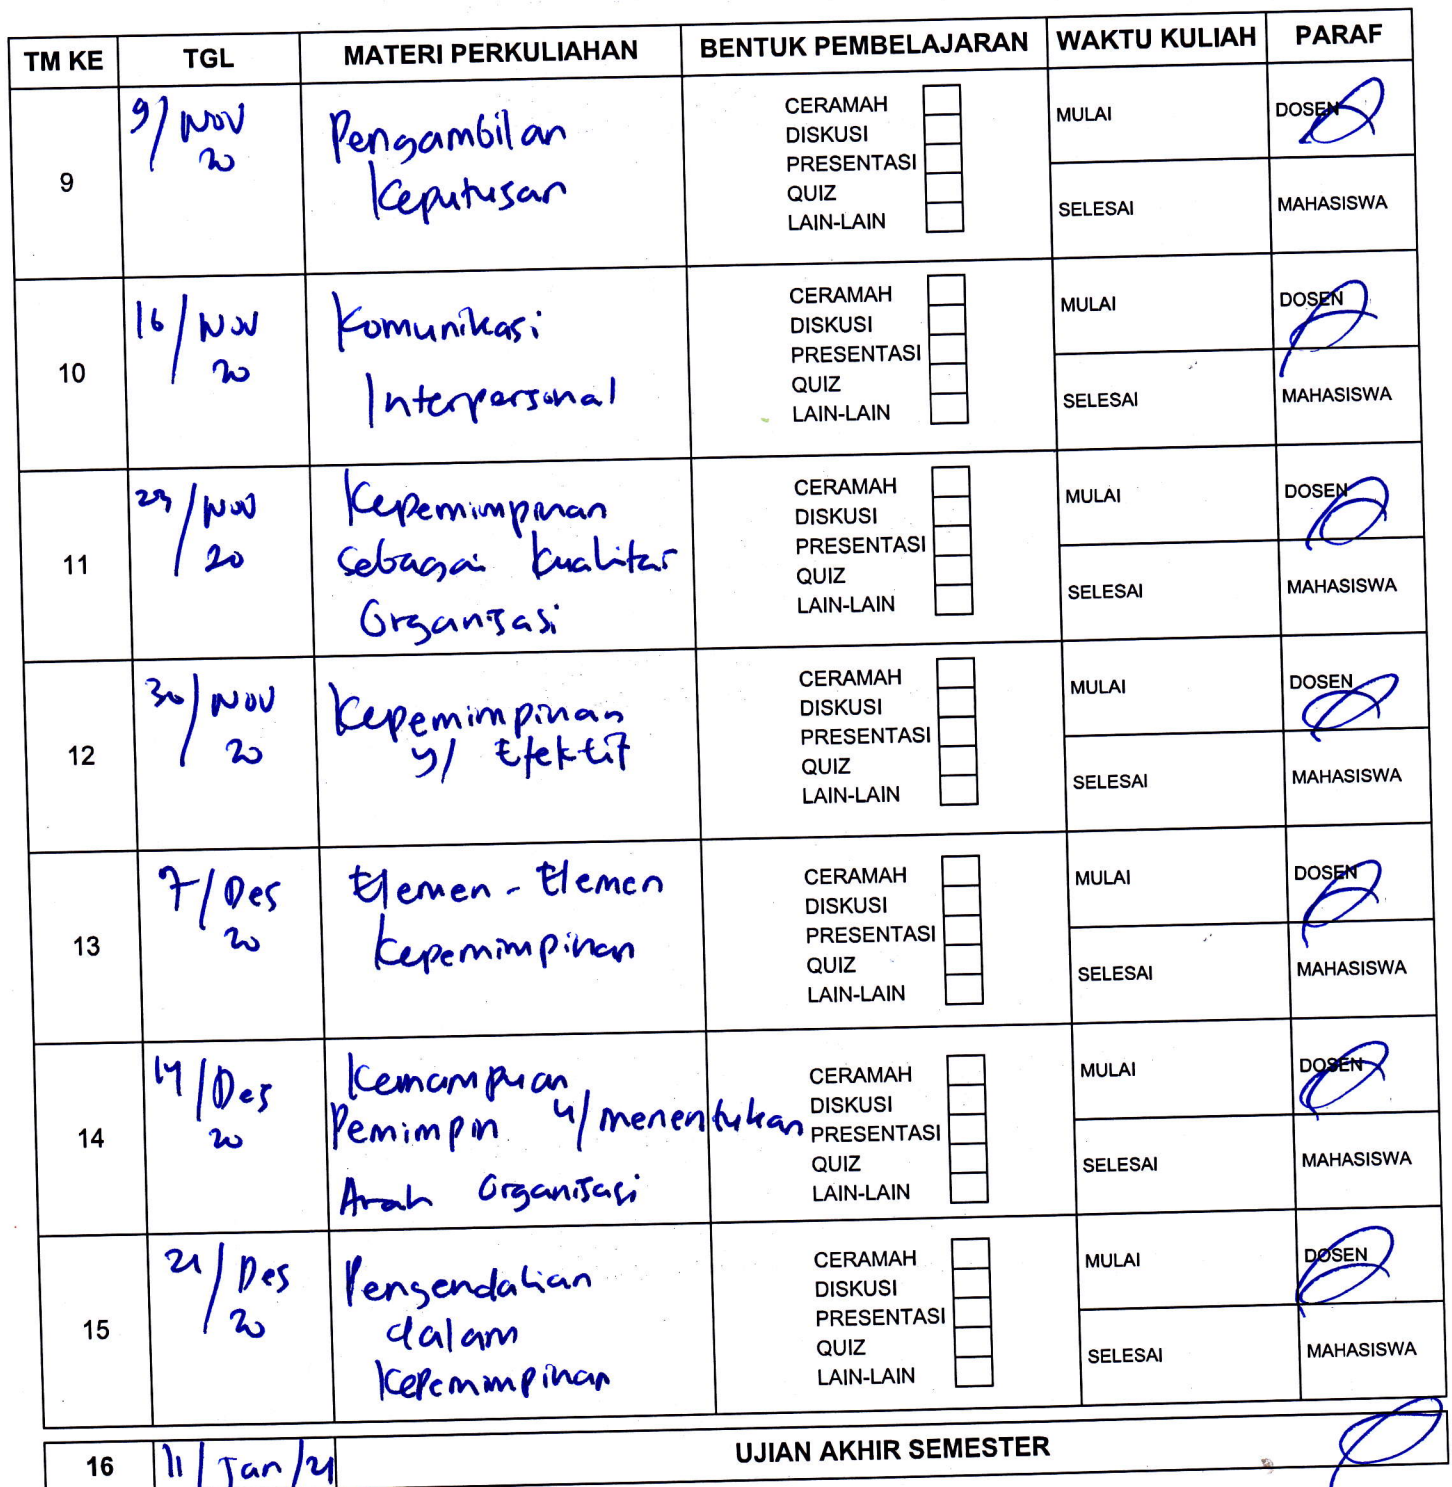 TM KE TGL MATERI PERKULIAHAN BENTUK PEMBELAJARAN WAKTU KULIAH PARAF
9
9/Nov
20
Pengambilan
Keputusan
CERAMAH
DISKUSI
PRESENTASI
QUIZ
LAIN-LAIN
MULAI
SELESAI
DOSEN
MAHASISWA
10
16/Nov
20
Komunikasi
Interpersonal
CERAMAH
DISKUSI
PRESENTASI
QUIZ
LAIN-LAIN
MULAI
SELESAI
DOSEN
MAHASISWA
11
23/Nov
20
Kepemimpinan
sebagai kualitas
Organisasi
CERAMAH
DISKUSI
PRESENTASI
QUIZ
LAIN-LAIN
MULAI
SELESAI
DOSEN
MAHASISWA
12
30/Nov
20
Kepemimpinan
y/ Efektif
CERAMAH
DISKUSI
PRESENTASI
QUIZ
LAIN-LAIN
MULAI
SELESAI
DOSEN
MAHASISWA
13
7/Des
20
Elemen - Elemen
Kepemimpinan
CERAMAH
DISKUSI
PRESENTASI
QUIZ
LAIN-LAIN
MULAI
SELESAI
DOSEN
MAHASISWA
14
14/Des
20
Kemampuan
Pemimpin u/ menentukan
Arah Organisasi
CERAMAH
DISKUSI
PRESENTASI
QUIZ
LAIN-LAIN
MULAI
SELESAI
DOSEN
MAHASISWA
15
21/Des
20
Pengendalian
dalam
Kepemimpinan
CERAMAH
DISKUSI
PRESENTASI
QUIZ
LAIN-LAIN
MULAI
SELESAI
DOSEN
MAHASISWA
16 11/Jan/21 UJIAN AKHIR SEMESTER